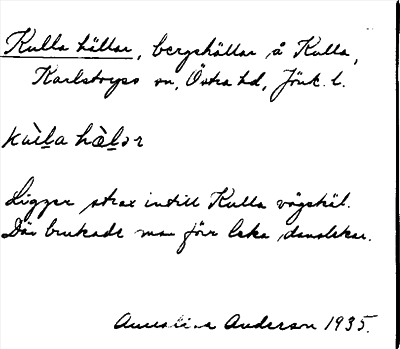 Kulla hällar, bergshällar å Kulla,
Karlstorps sn, Östra hd, Jönk. l.
kùl̲a hæ̀l̲ar
Ligger strax intill Kulla vägskäl.
Där brukade man förr leka danslekar.
Anderson 1935.